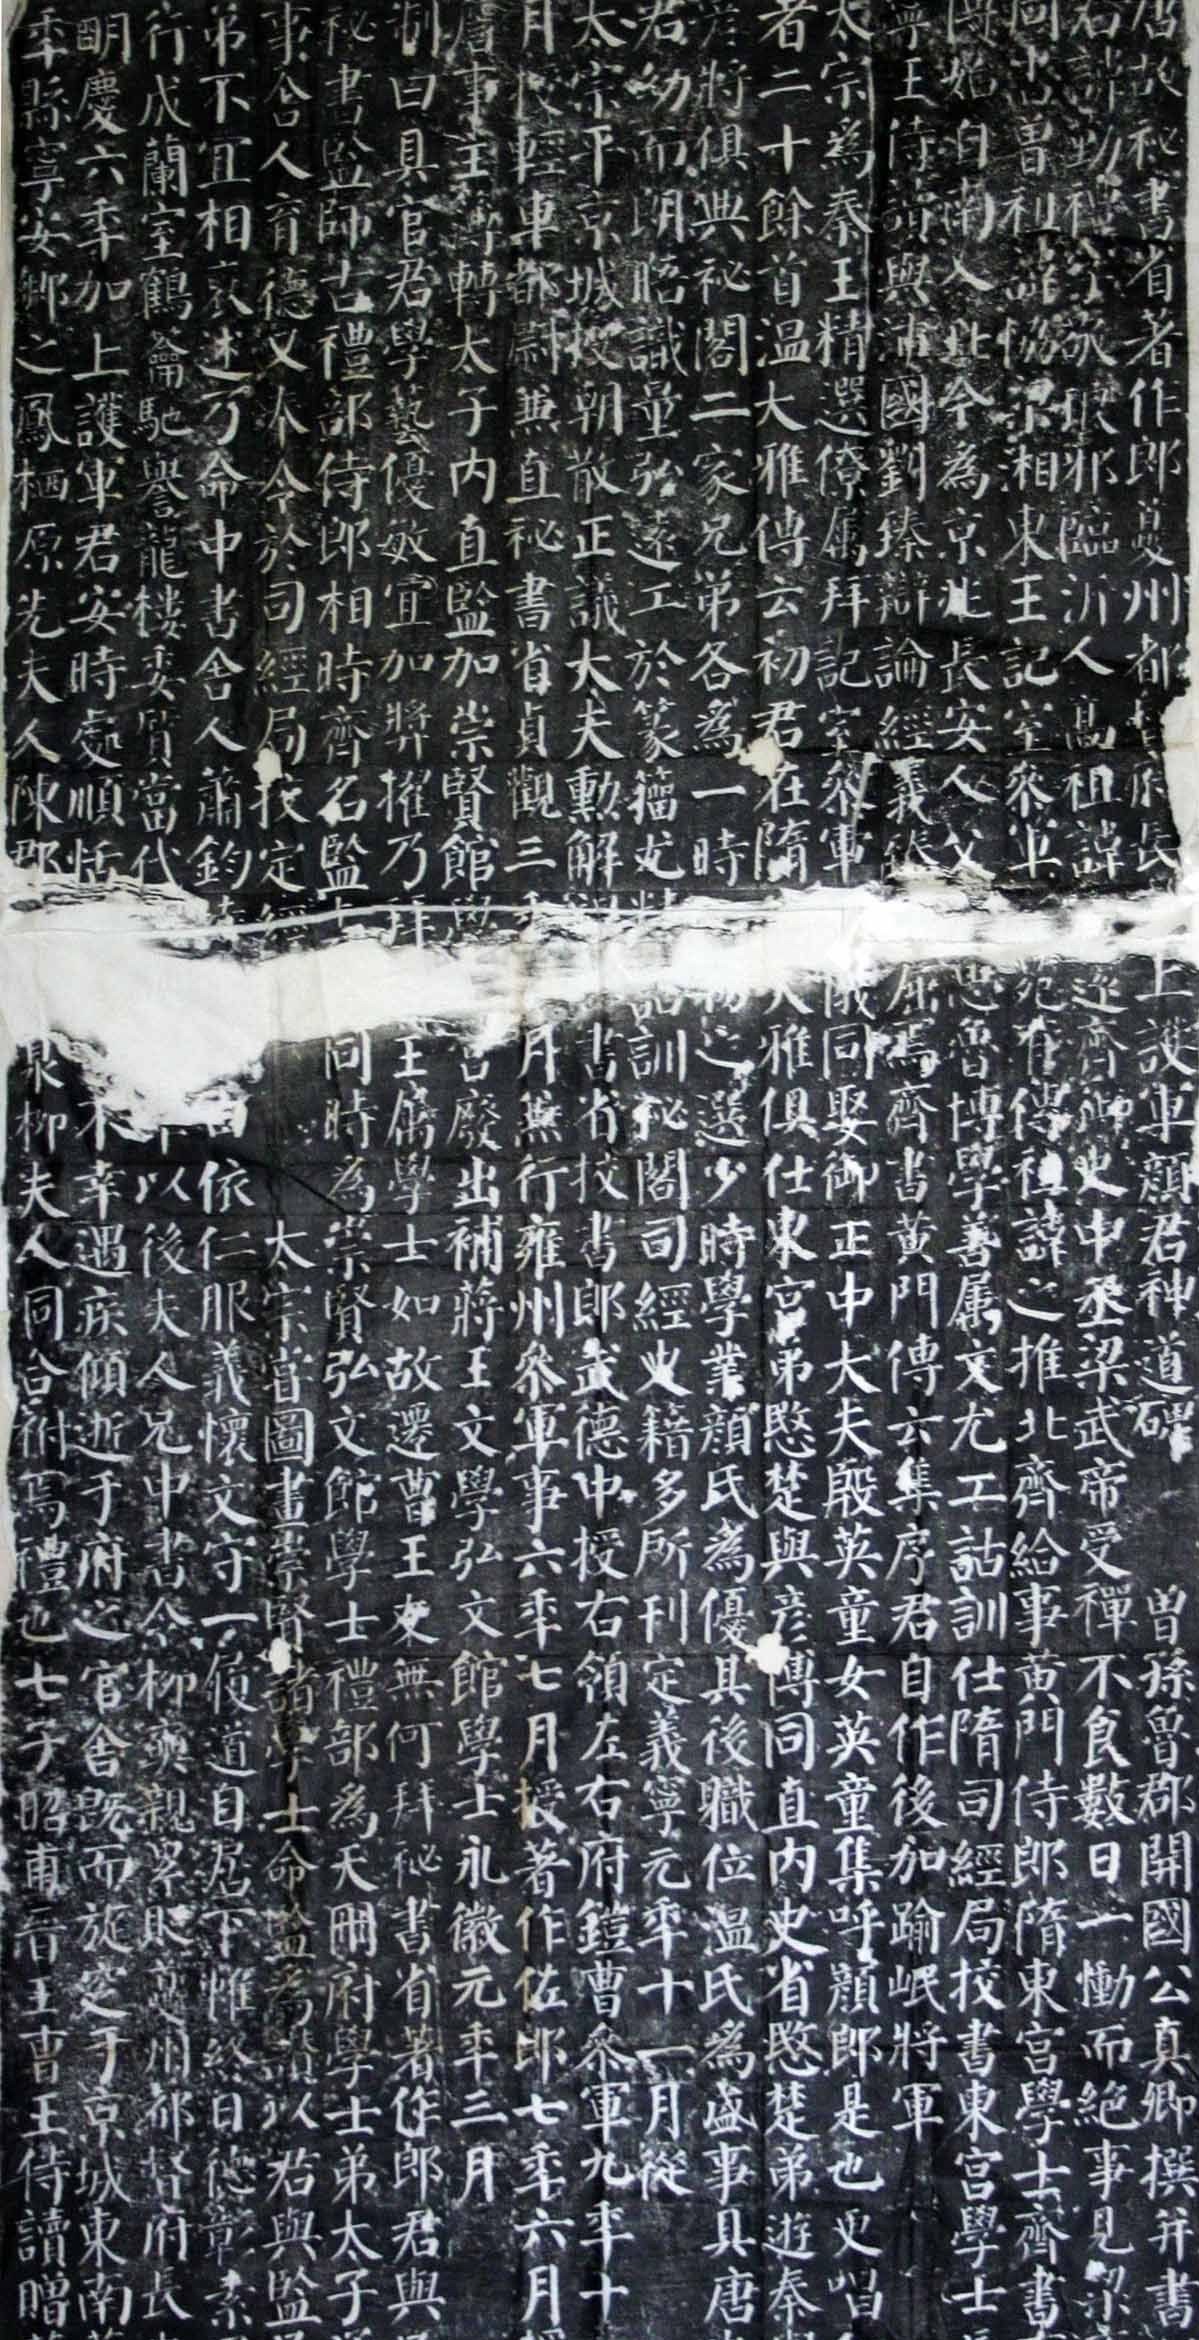 唐故秘書省著作郎夔州都督府長上護軍顏君神道碑 曾孫魯郡開國公真卿撰并書
君諱勤禮字敬琅邪臨沂人高祖諱逐齊御史中丞梁武帝受禪不食數日一慟而絕事見梁
曾祖諱協梁湘東王記室參軍苑有傳祖諱之推北齊給事黃門侍郎隋東宮學士齊書
始自南入北今為京兆長安人父思魯博學善屬文尤工詁訓仕隋司經局校書東宮學士
寧王侍讀與沛國劉臻辯論經義臻屈焉齊書黃門傳云集序君自作後加踰岷將軍
太宗為秦王精選僚屬拜記室參軍儀同娶御正中大夫殷英童女英童集呼顏郎是也更唱
者二十餘首溫大雅傳云初君在隋大雅俱仕東宮弟愍楚與彥博同直內史省愍楚弟遊秦
彥將俱典祕閣二家兄弟各為一時物之選少時學業顏氏為優其後職位溫氏為盛事具唐
君幼而朗晤識量弘遠工於篆籀尤精詁訓祕閣司經史籍多所刊定義寧元年十一月從
太宗平京城授朝散正議大夫勳解書省校書郎武德中授右領左右府鎧曹參軍九年十
月授輕車都尉兼直秘書省貞觀三年月兼行雍州參軍事六年七月授著作佐郎七年六月
詹事主簿轉太子內直監加崇賢館學宮廢出補蔣王文學弘文館學士永徽元年三月
制曰具官君學藝優敏宜加獎擢乃拜王屬學士如故遷曹王友無何拜秘書省著作郎君與
秘書監師古禮部侍郎相時齊名監同時為崇賢弘文館學士禮部為天冊府學士弟太子
事舍人育德又奉令於司經局校定經太宗嘗圖畫崇賢諸學士命監為讚以君與監
弟不宜相褒述乃命中書舍人蕭鈞依仁服義懷文守一履道自居下帷終日德彰素
行成蘭室鶴籥馳譽龍樓委質當代以後夫人兄中書令柳奭親累貶夔州都督府長
明慶六年加上護軍君安時處順恬不幸遇疾傾逝于府之官舍既而旋窆于京城東南
年縣寧安鄉之鳳栖原先夫人陳郡柳夫人同合祔焉禮也七子昭甫晉王曹王侍讀贈